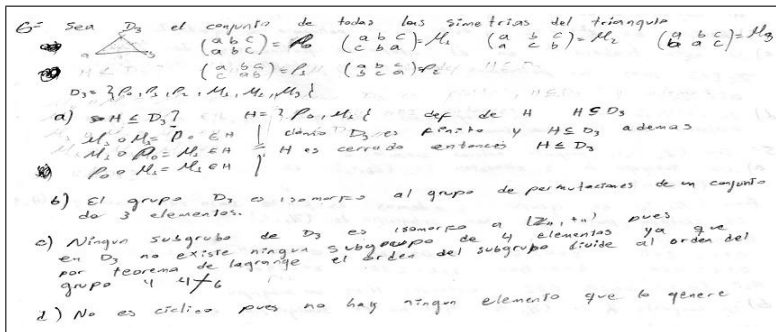 6= Sea D₃ el conjunto de todas las simetrias del triangulo
(a b c / a b c) = ρ₀ (a b c / c b a) = μ₁ (a b c / a c b) = μ₂ (a b c / b a c) = μ₃
(a b c / c a b) = ρ₁ (a b c / b c a) = ρ₂
D₃ = {ρ₀, ρ₁, ρ₂, μ₁, μ₂, μ₃}
a) H ≤ D₃? H = {ρ₀, μ₁} def de H H ⊆ D₃
μ₁ ∘ μ₁ = ρ₀ ∈ H como D₃ es finito y H ⊆ D₃ ademas
μ₁ ∘ ρ₀ = μ₁ ∈ H H es cerrado entonces H ≤ D₃
ρ₀ ∘ μ₁ = μ₁ ∈ H
b) El grupo D₃ es isomorfo al grupo de permutaciones de un conjunto
de 3 elementos.
c) Ningun subgrubo de D₃ es isomorfo a (Z₄, +₄) pues
en D₃ no existe ningun subgrupo de 4 elementos ya que
por teorema de lagrange el orden del subgrupo divide al orden del
grupo y 4∤6
d) No es ciclico pues no hay ningun elemento que lo genere